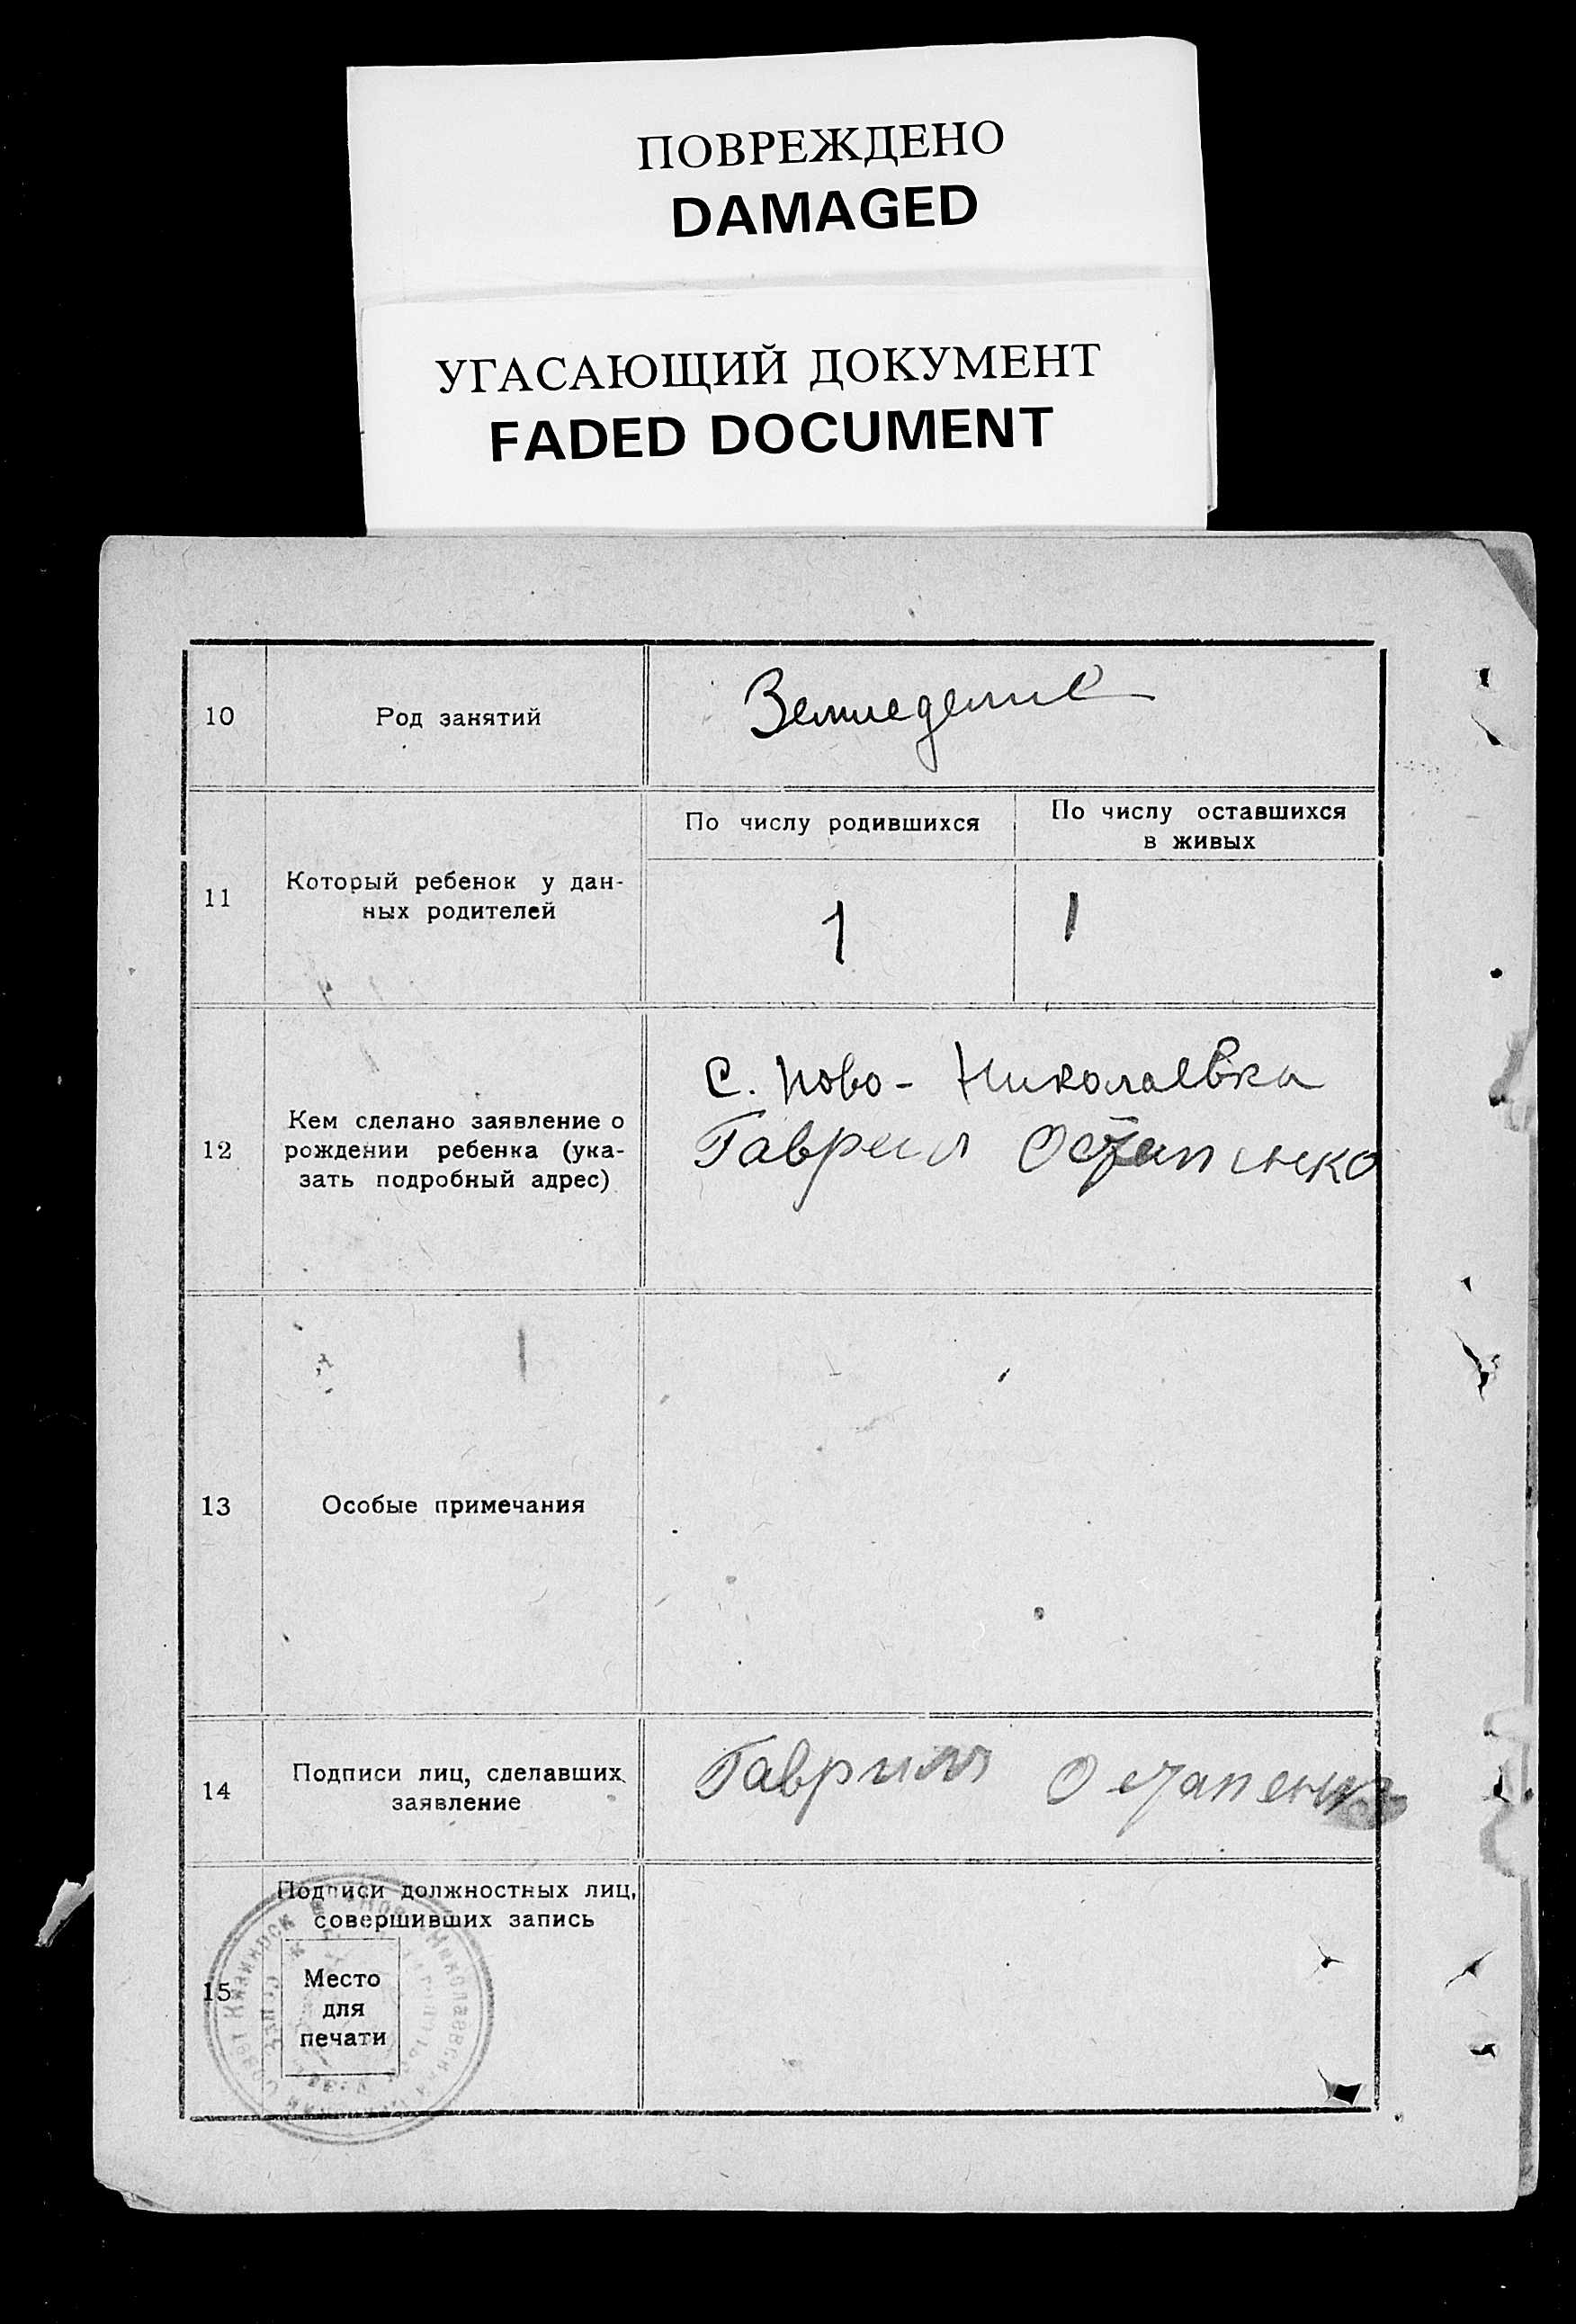 ПОВРЕЖДЕНО
DAMAGED
УГАСАЮЩИЙ ДОКУМЕНТ
FADED DOCUMENT
10
Род занятий
Земледелие
11
Который ребенок у дан-
ных родителей
По числу родившихся
По числу оставшихся
в живых
1
1
12
Кем сделано заявление о
рождении ребенка (ука-
зать подробный адрес)
с. Ново- Николаевка
Гавреил Остапенко
13
Особые примечания
14
Подписи лиц, сделавших
заявление
Гаврил Остапенко
15
Подписи должностных лиц,
совершивших запись
Место
для
печати